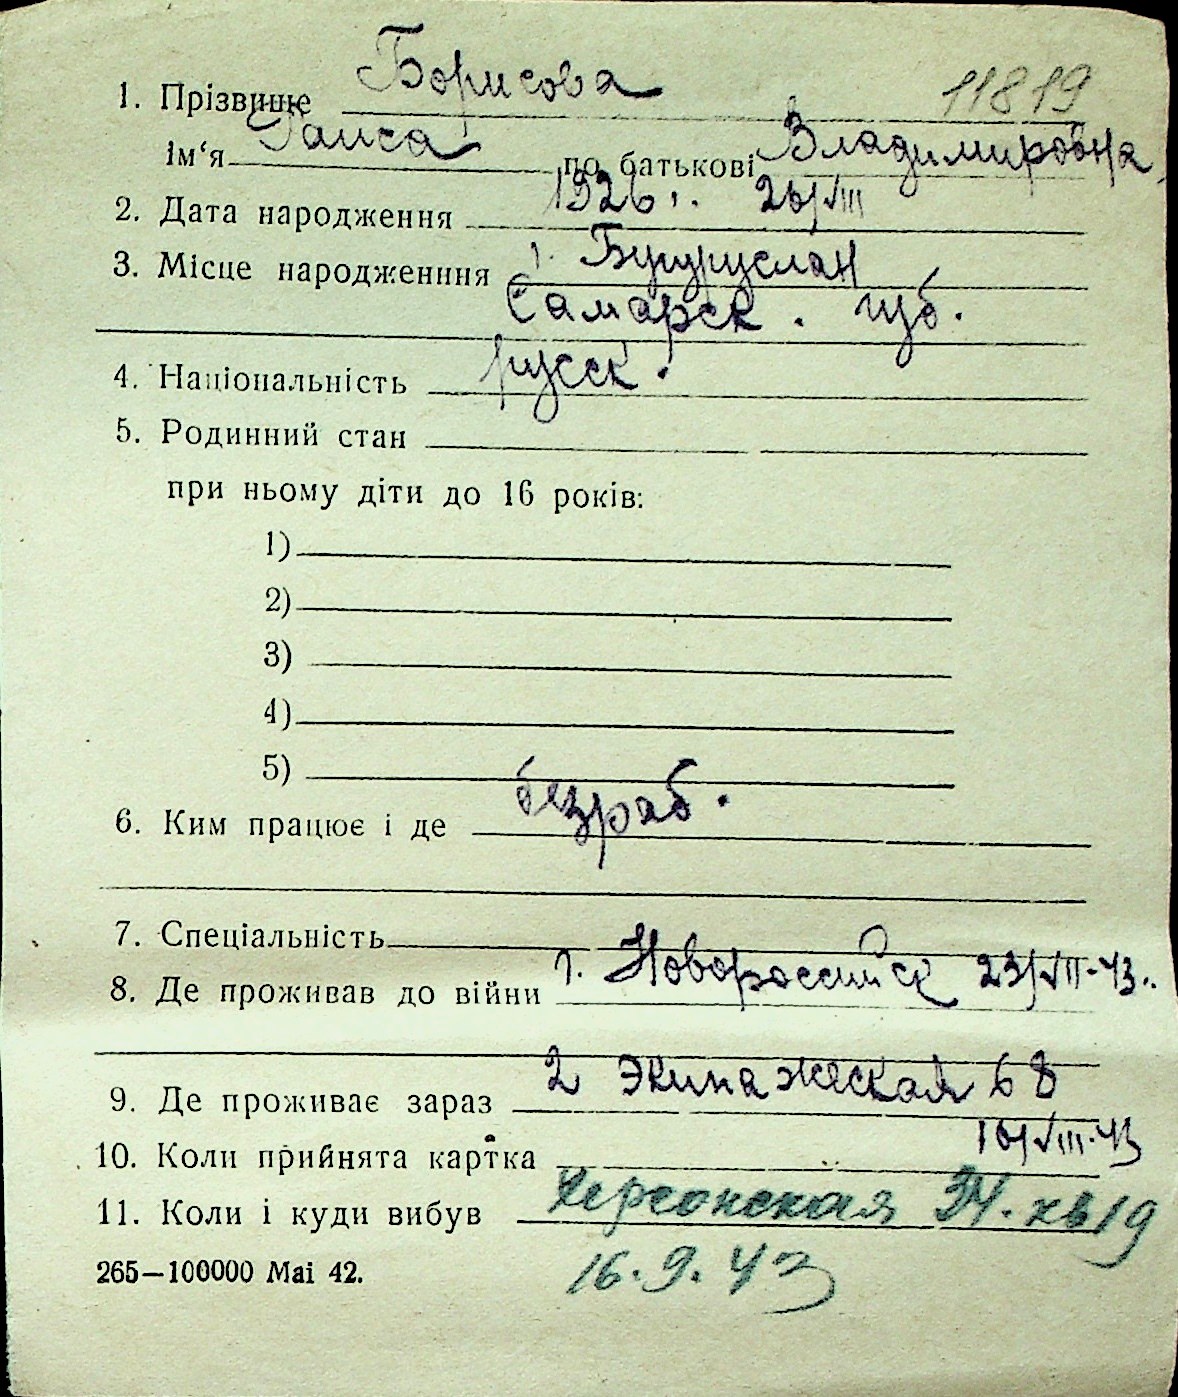 11819
1. Прізвище Борисова
Ім‘я Раиса по батькові Владимировна
2. Дата народження 1926 г. 26/VIII
3. Місце народженння г. Бугуруслан
Самарск. губ.
4. Національність русск.
5. Родинний стан
при ньому діти до 16 років:
1)
2)
3)
4)
5)
6. Ким працює і де безраб.
7. Спеціальність
8. Де проживав до війни г. Новороссийск 23/VII-43.
9. Де проживає зараз 2 Экипажеская 68
10. Коли прийнята картка 16/VIII-43
11. Коли і куди вибув Херсонская 34. кв 19
16.9.43
265—100000 Mai 42.